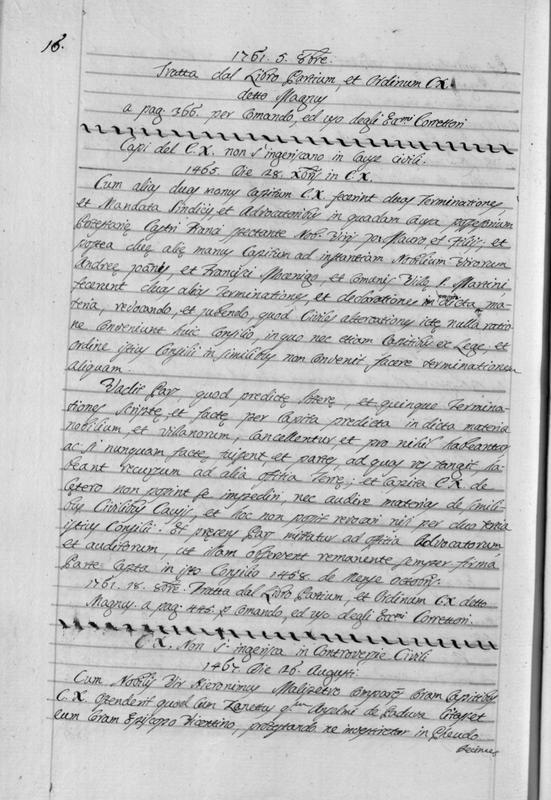 16.
1761. 5. 8bre.
Tratta dal Libro Partium, et Ordinum C.X.
detto Magnus
a pag. 366. per Comando, ed uso degli Ecc.mi Correttori
Capi del C.X. non s'ingeriscano in Cause civili.
1465. Die 28. Xbris in C.X.
Cum alias duas manus Capitum C.X. fecerint duas Terminationes
et Mandata Sindicis, et Advocatoribus in quadam causa possessionum
Potestarie Castri Franci spectante Nob. Viri ser Mauro, et Filiis: et
postea due alie manus Capitum ad instantiam Nobilium Virorum
Andree Joanis, et Francisci Mocenigo, et Comunis Ville S. Martini
fecerent duas alias Terminationes, et declarationes in dicta ma-
teria, revocando, et jubendo, quod Civiles altercationes iste nulla ratio-
ne Conveniunt huic Consilio, in quo nec etiam Capitibus ex Lege, et
ordine istius Consilii in similibus non Convenit facere terminationem
aliquam.
Vadit Pars, quod predicte littere, et quinque Termina-
tiones scripte, et facte per Capita predicta in dicta materia
nobilium, et Villanorum, Cancellentur et pro nihil habeantur
ac si nunquam facte fuissent, et partes, ad quas res tangit ha-
beant recursum ad alia offitia Terre: et Capita C.X. de
Cetero non possint se impedire, nec audire materias de simili-
bus Civilibus Causis, et hoc non possit revocari nisi per duo tertia
istius Consilii. Et presens Pars mittatur ad offitia Advocatorum
et auditorum, ut illam observent remanente semper firma
Parte Capta in isto Consilio 1458. de Mense Octobris.
1761. 18. 8bre. Tratta dal Libro Partium, et Ordinum C.X. detto
Magnus a pag. 445. p Comando, ed uso degli Ecc.mi Correttori.
C.X. Non s'ingerisca in Controversie Civili
1467. Die 26. Augusti
Cum Nobilis Vir Hieronimus Malipetro Coram Capitibus
C.X. Ostenderit quod Cum Zanetus qm Anselmi de Padua Citasset
eum Coram Episcopo Vicentino, protestando ne in Feudo
Decimes